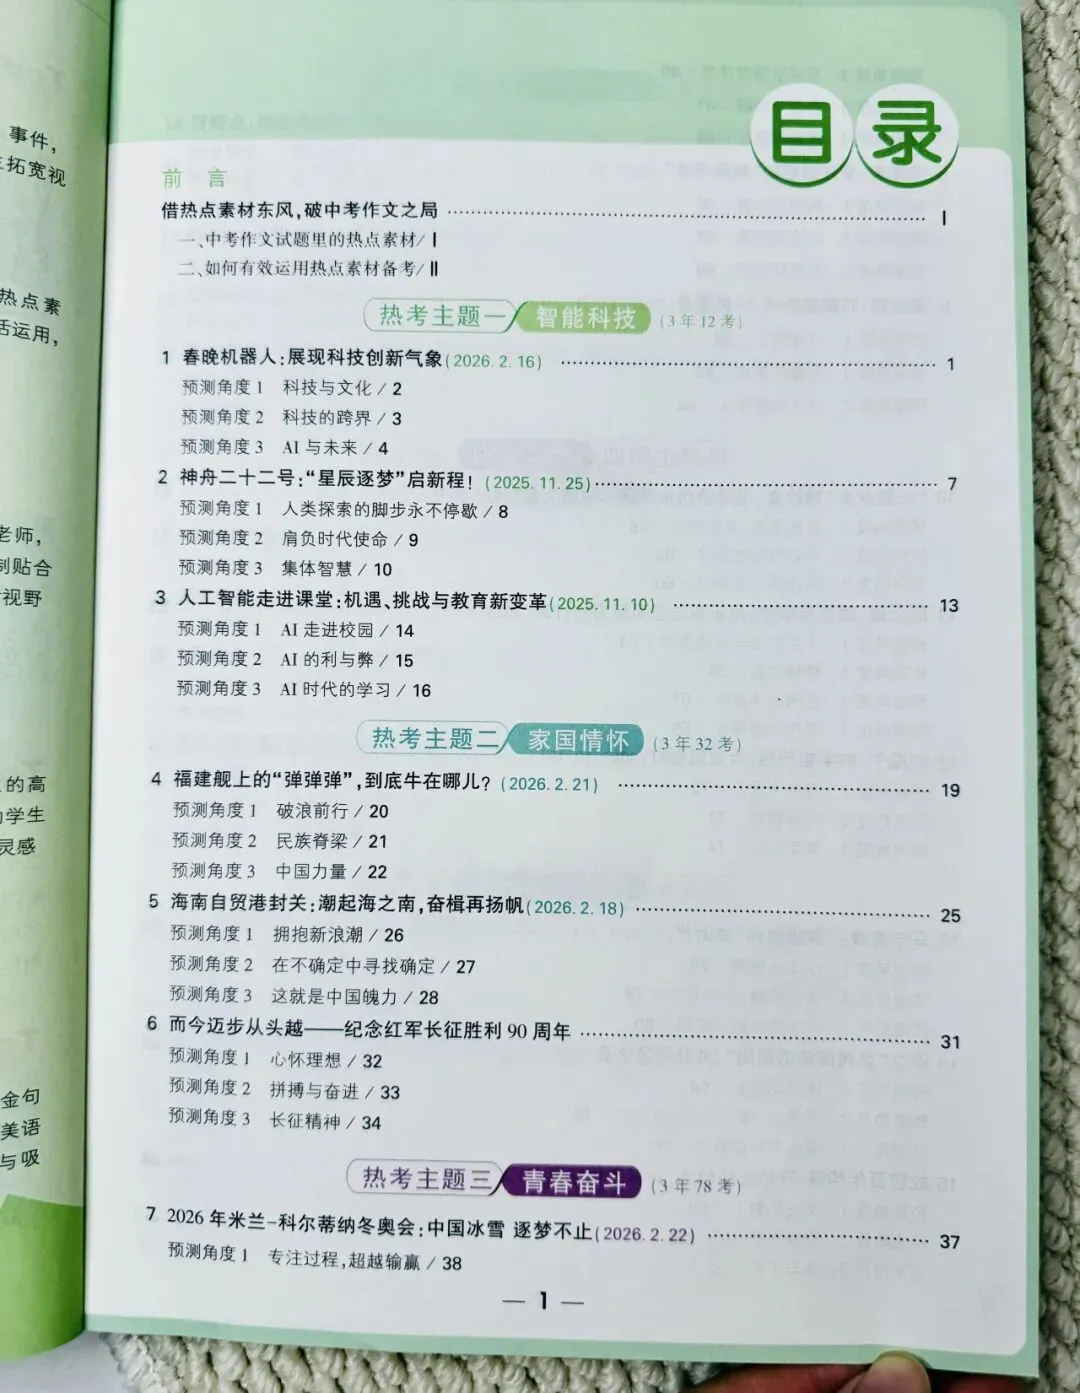 事件,
拓宽视
热点素
活运用,
老师,
制贴合
视野
的高
学生
灵感
金句
美语
与吸
目录
前 言
借热点素材东风,破中考作文之局 …… Ⅰ
一、中考作文试题里的热点素材/Ⅰ
二、如何有效运用热点素材备考/Ⅱ
热考主题一 智能科技 (3年12考)
1 春晚机器人:展现科技创新气象(2026.2.16) …… 1
预测角度1 科技与文化/2
预测角度2 科技的跨界/3
预测角度3 AI与未来/4
2 神舟二十二号:“星辰逐梦”启新程!(2025.11.25) …… 7
预测角度1 人类探索的脚步永不停歇/8
预测角度2 肩负时代使命/9
预测角度3 集体智慧/10
3 人工智能走进课堂:机遇、挑战与教育新变革(2025.11.10) …… 13
预测角度1 AI走进校园/14
预测角度2 AI的利与弊/15
预测角度3 AI时代的学习/16
热考主题二 家国情怀 (3年32考)
4 福建舰上的“弹弹弹”,到底牛在哪儿?(2026.2.21) …… 19
预测角度1 破浪前行/20
预测角度2 民族脊梁/21
预测角度3 中国力量/22
5 海南自贸港封关:潮起海之南,奋楫再扬帆(2026.2.18) …… 25
预测角度1 拥抱新浪潮/26
预测角度2 在不确定中寻找确定/27
预测角度3 这就是中国魄力/28
6 而今迈步从头越——纪念红军长征胜利90周年 …… 31
预测角度1 心怀理想/32
预测角度2 拼搏与奋进/33
预测角度3 长征精神/34
热考主题三 青春奋斗 (3年78考)
7 2026年米兰-科尔蒂纳冬奥会:中国冰雪 逐梦不止(2026.2.22) …… 37
预测角度1 专注过程,超越输赢/38
— 1 —